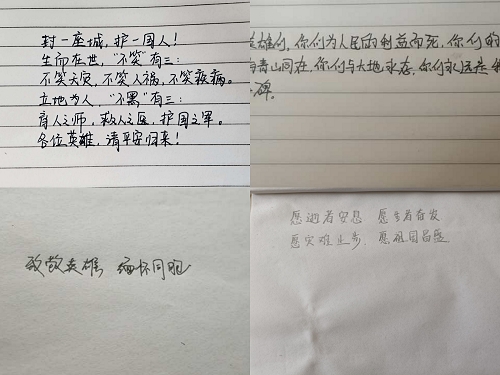 封一座城，护一国人！
生而在世，“不笑”有三：
不笑天灾，不笑人祸，不笑疾病。
立地为人，“不黑”有三：
育人之师，救人之医，护国之军。
各位英雄，请平安归来！
英雄们，你们为人民的利益而死，你们的
与青山同在，你们与大地永存，你们永远在
碑。
致敬英雄 缅怀同胞
愿逝者安息 愿生者奋发
愿灾难止步，愿祖国昌盛